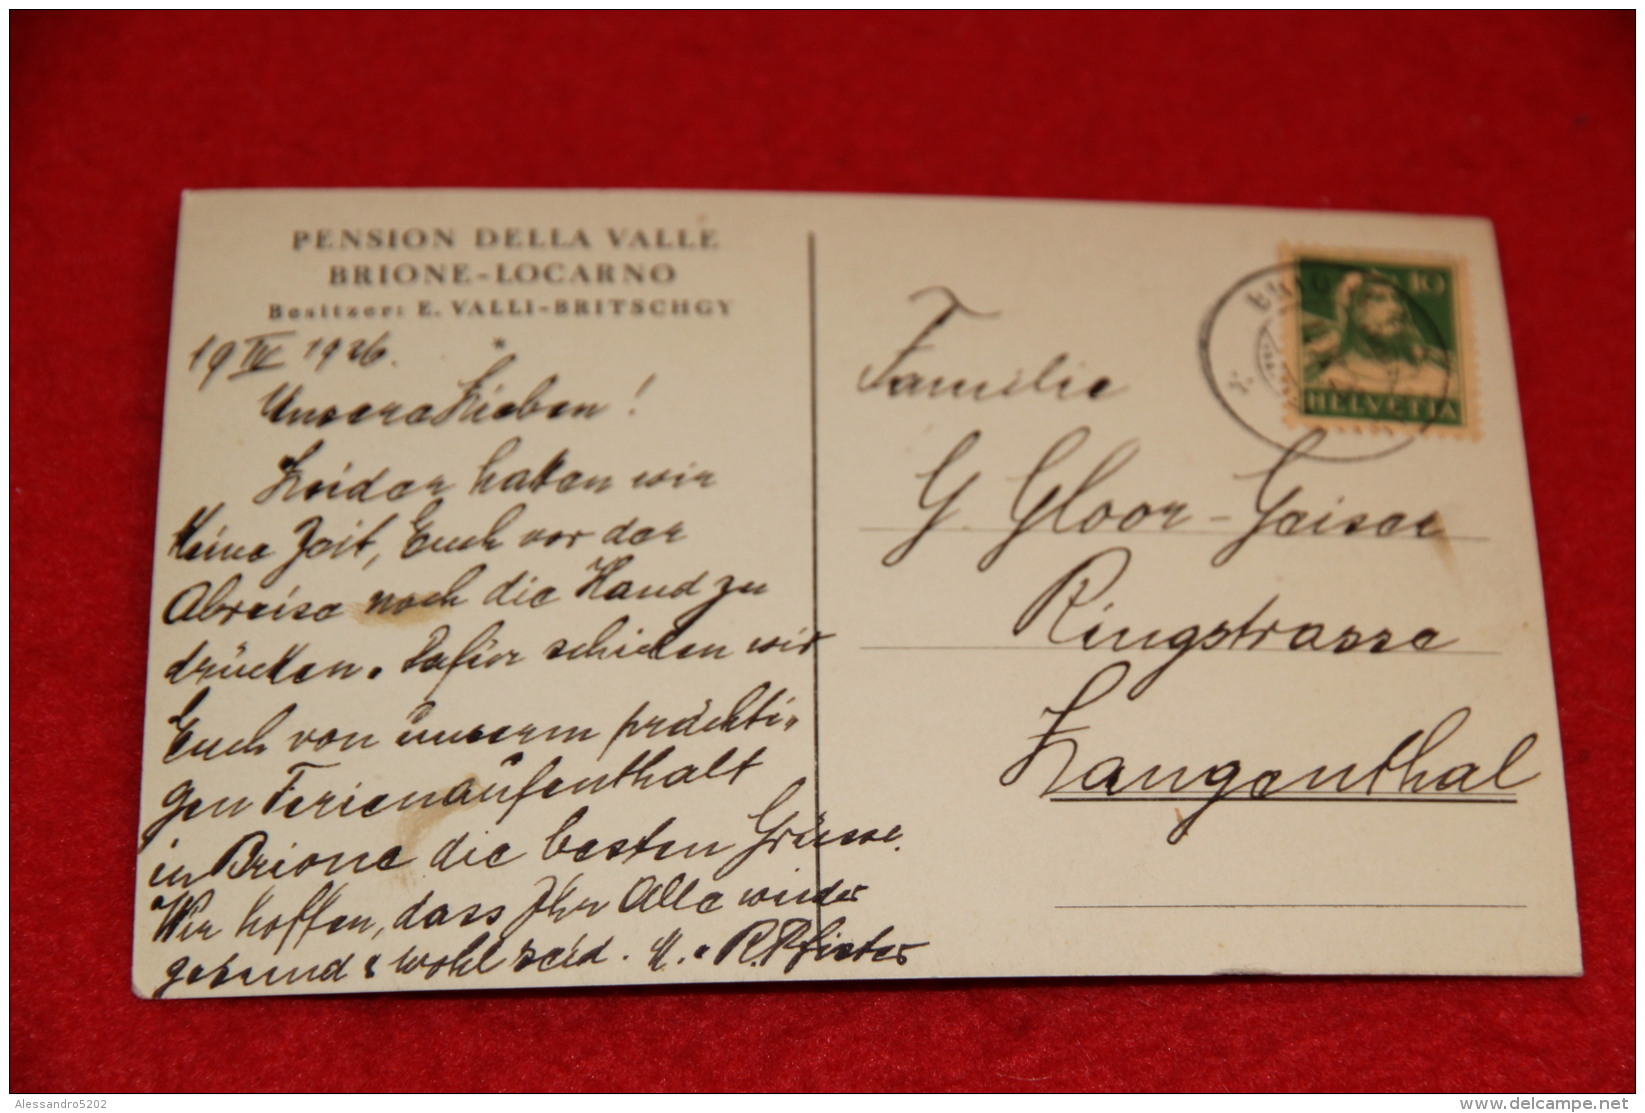 PENSION DELLA VALLE
BRIONE-LOCARNO
Besitzer: E. VALLI-BRITSCHGY
19 IV 1926.
Unsere Lieben!
Leider hatten wir
keine Zeit, Euch vor der
Abreise noch die Hand zu
drücken. Dafür schicken wir
Euch von unserm prächti-
gen Ferienaufenthalt
in Brione die besten Grüsse.
Wir hoffen, dass Ihr Alle wieder
gesund & wohl seid. M. & R. Pfister
10
HELVETIA
Familie
G. Gloor-Geiser
Ringstrasse
Langenthal
Alessandro5202
delcampe.net